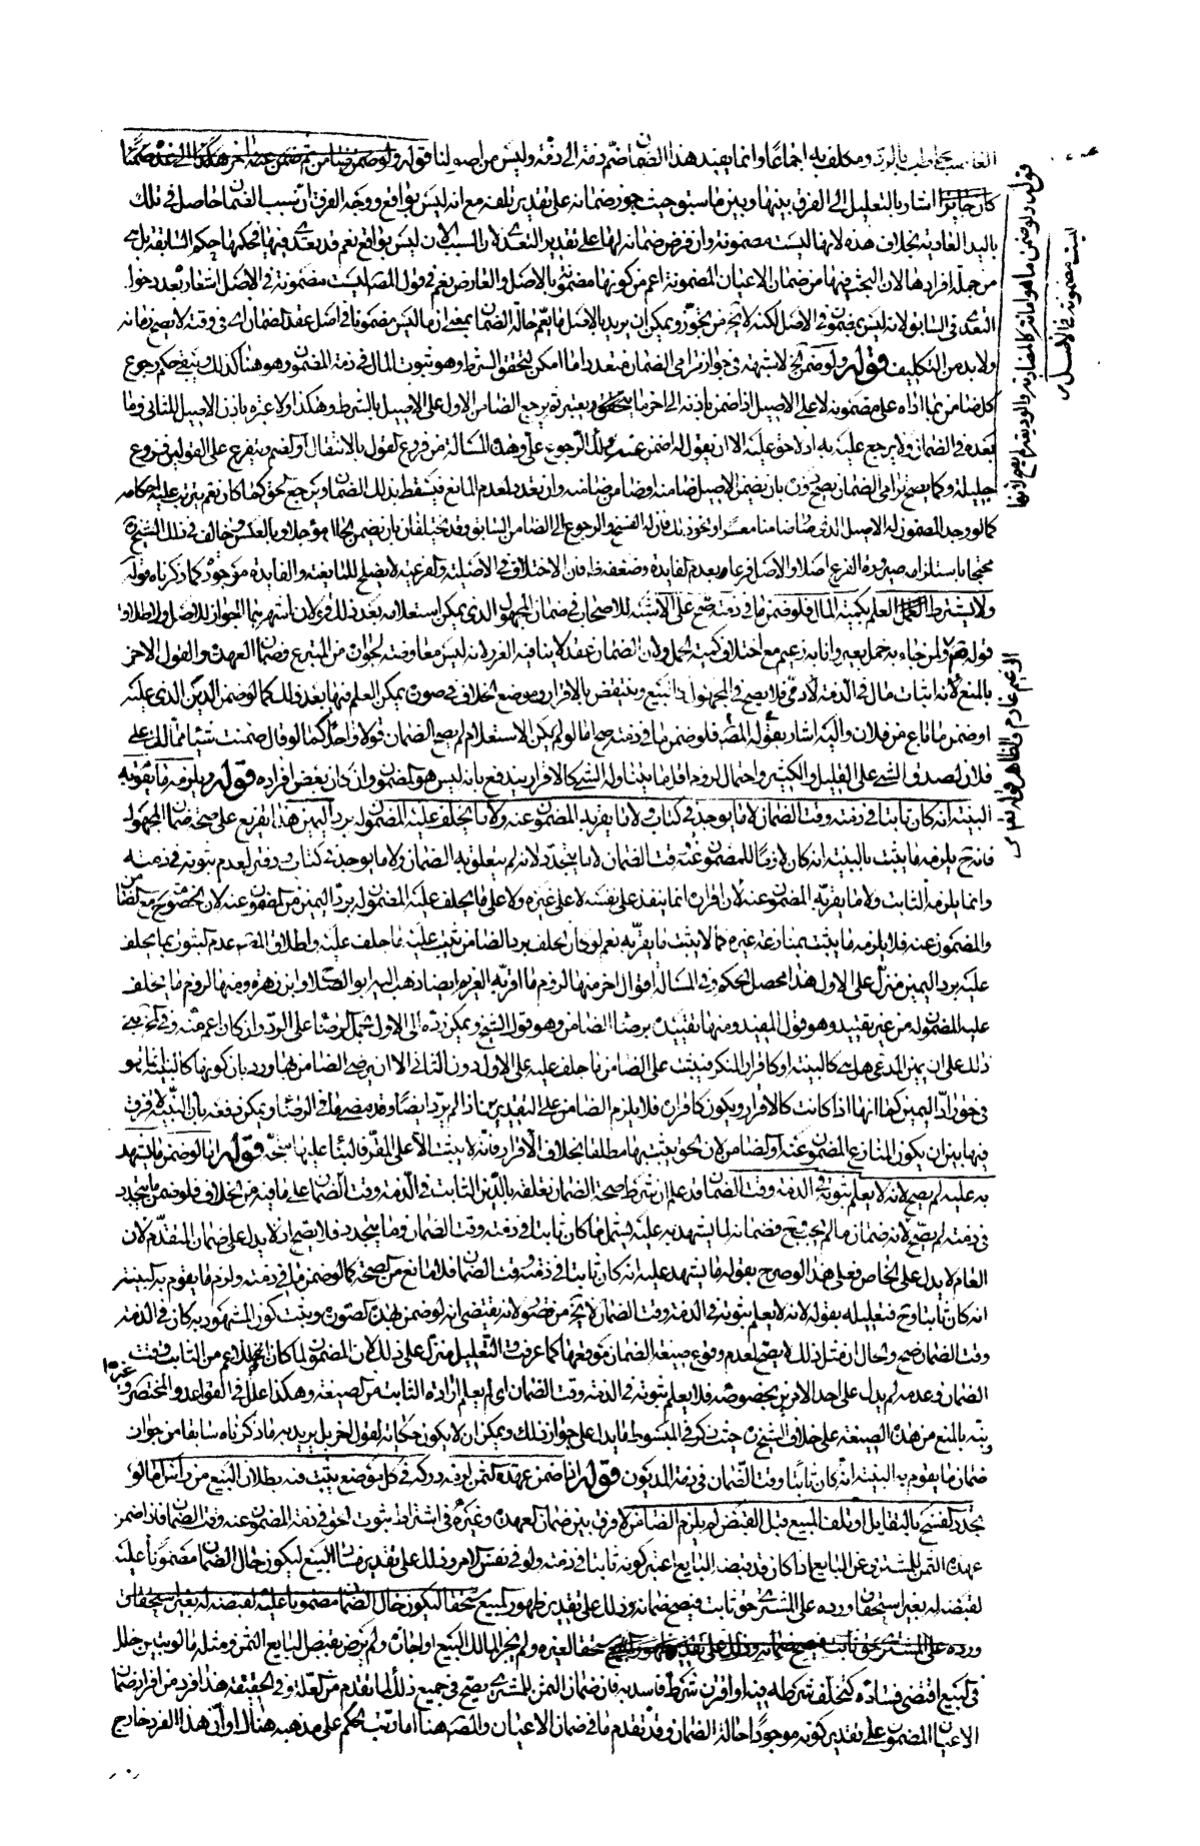 الغاصب مخاطب بالرد ومكلف به اجماعا وانما يفيد هذا الضمان ضم ذمة الى ذمة وليس من اصولنا قوله ولو ضمن ضامن ثم ضمن عنه اخر هكذا الى عدة ضمناء
كان جائزا اشار بالتعليل الى الفرق بينها وبين ما سبق حيث جوز ضمانه على تقدير تلفه مع انه ليس بواقع ووجه الفرق ان سبب الضمان حاصل في تلك
باليد العادية بخلاف هذه لانها ليست مضمونة وان فرض ضمانه لها على تقدير التعدي لان السبب الان ليس بواقع نعم قد يتعدى فيها فحكمها حكم السابقة بل هي
من جملة افرادها لان البحث فيها من ضمان الاعيان المضمونة اعم من كونها مضمونة بالاصل والعارض نعم في قول المصنف ليست مضمونة في الاصل اشعار بعدم دخول
التعدي في السابق لانه ليس بمضمون في الاصل لكنه لا يخ من تجوز ويمكن ان يريد بالاصل ما يعم حالة الضمان بمعنى ان ما ليس مضمونا في اصل عقد الضمان اي في وقته لا يصح ضمانه
ولا بد من التكليف قوله ولو ضمن الخ لا شبهة في جواز ترامي الضمان متعددا ما امكن لتحقق الشرط وهو ثبوت المال في ذمة المضمون وهو هنا كذلك ويبقى حكم رجوع
كل ضامن بما اداه على مضمونه لا على الاصيل اذا ضمن باذنه الى اخر ما يعتبر ثم يرجع الضامن الاول على الاصيل بالشرط وهكذا ولا عبرة باذن الاصيل للثاني وما
بعده في الضمان ولا يرجع عليه به اذ لا حق عليه الا ان يقول له اضمن عنه ولك الرجوع علي وهذه المسالة من فروع القول بالانتقال او الضم ويتفرع على القولين فروع
جليلة وكما يصح ترامي الضمان يصح دوره بان يضمن الاصيل ضامنه او ضامن ضامنه وان تعدد لعدم المانع فيسقط بذلك الضمان ويرجع الحق كما كان نعم يترتب عليه احكامه
كما لو وجد المضمون له الاصيل الذي صار ضامنا معسرا ونحو ذلك فان له الفسخ والرجوع الى الضامن السابق وقد يختلفان بان يضمن الحال مؤجلا وبالعكس وخالف في ذلك الشيخ
محتجا باستلزامه صيرورة الفرع اصلا والاصل فرعا وبعدم الفايدة وضعفه ظ فان الاختلاف في الاصلية والفرعية لا يصلح للمانعية والفايدة موجودة كما ذكرناه قوله
ولا يشترط العلم بكمية المال فلو ضمن ما في ذمته صح على الاشبه للاصحاب في ضمان المجهول الذي يمكن استعلامه بعد ذلك قولان اشهرهما الجواز للاصل ولاطلاق
قوله تع ولمن جاء به حمل بعير وانا به زعيم مع اختلاف كمية الحمل ولان الضمان عقد لا ينافيه الغرر لانه ليس معاوضة لجوازه من المتبرع وضمان العهدة والقول الاخر
بالمنع لانه اثبات مال في الذمة لادمي فلا يصح في المجهول كالبيع وينتقض بالاقرار وموضع الخلاف في صورة يمكن العلم فيها بعد ذلك كما لو ضمن الدين الذي عليه
او ضمن ما باع من فلان واليه اشار بقوله المصنف فلو ضمن ما في ذمته صح اما لو لم يكن الاستعلام لم يصح الضمان قولا واحدا كما لو قال ضمنت شيئا مما لك على
فلان لصدق الشئ على القليل والكثير واحتمال لزوم اقل ما يتناوله الشئ كالاقرار يندفع بانه ليس هو المضمون وان كان بعض افراده قوله ويلزمه ما تقوم به
البينة انه كان ثابتا في ذمته وقت الضمان لا ما يوجد في كتاب ولا ما يقر به المضمون عنه ولا ما يحلف عليه المضمون له برد اليمين هذا تفريع على صحة ضمان المجهول
فانه ح يلزمه ما يثبت بالبينة انه كان لازما للمضمون عنه وقت الضمان لا ما يتجدد لانه لم يتعلق به الضمان ولا ما يوجد في كتاب ودفتر لعدم ثبوته في ذمته
وانما يلزمه الثابت ولا ما يقر به المضمون عنه لان اقراره انما ينفذ على نفسه لا على غيره ولا على ما يحلف عليه المضمون له برد اليمين من المضمون عنه لان الخصومة ح مع الضامن
والمضمون عنه فلا يلزمه ما يثبت بمنازعة غيره كما لا يثبت ما يقر به نعم لو كان الحلف برد الضامن ثبت عليه ما حلف عليه واطلاق المصنف عدم الثبوت بما يحلف
عليه برد اليمين منزل على الاول هذا محصل الحكم وفي المسالة اقوال اخر منها لزوم ما اقر به الغريم ايضا ذهب اليه ابو الصلاح وابن زهرة ومنها لزوم ما يحلف
عليه المضمون له من غير تقييد وهو قول المفيد ومنها تقييده برضا الضامن وهو قول الشيخ ويمكن رده الى الاول بحمل الرضا على الرد وان كان اعم منه وفي المختلف بنى
ذلك على ان يمين المدعي هل هي كالبينة او كاقرار المنكر فيثبت على الضامن ما حلف عليه على الاول دون الثاني الا ان يرضى الضامن بها ورد بان كونها كالبينة انما هو
في حق راد اليمين كما انها اذا كانت كالاقرار ويكون كاقراره فلا يلزم الضامن على التقديرين اذا لم يرد ايضا وقد مضى مثله في الرضا ويمكن دفعه بان البينة لا فرق
فيها بين ان يكون المنازع المضمون عنه او الضامن لان الحق يثبت بها مطلقا بخلاف الاقرار فانه لا يثبت الا على المقر فالبناء عليها متجه قوله اما لو ضمن ما يشهد
به عليه لم يصح لانه لا يعلم ثبوته في الذمة وقت الضمان قد علم ان شرط صحة الضمان تعلقه بالدين الثابت في الذمة وقت الضمان على ما فيه من الخلاف فلو ضمن ما يتجدد
في ذمته لم يصح لانه ضمان ما لم يجب وح فضمانه لما يشهد به عليه يشمل ما كان ثابتا في ذمته وقت الضمان وما يتجدد فلا يصح اذ لا يدل على ضمان المتقدم لان
العام لا يدل على الخاص فعلى هذا لو صرح بقوله ما يشهد عليه انه كان ثابتا في ذمته وقت الضمان فلا مانع من الصحة كما لو ضمن ما في ذمته ولزم ما يقوم به البينة
انه كان ثابتا وح فتعليله بقوله لانه لا يعلم ثبوته في الذمة وقت الضمان لا يخ من قصور لانه يقتضي انه لو ضمن بهذه الصورة وثبت كون المشهود به كان في الذمة
وقت الضمان صح والحال ان مثل ذلك لا يصح لعدم وقوع صيغة الضمان موقعها كما عرفت والتعليل منزل على ذلك لان المضمون لما كان اعم من الثابت وقت
الضمان وعدمه لم يدل على احد الامرين بخصوصه فلا يعلم ثبوته في الذمة وقت الضمان اي لم يعلم ارادة الثابت من الصيغة وهكذا علل في القواعد والمختصر وغيرهما
ونبه بالمنع من هذه الصيغة على خلاف الشيخ ره حيث ذكر في المبسوط ما يدل على جواز ذلك ويمكن ان لا يكون حكاية لقول اخر بل يريد به ما ذكرناه سابقا من جواز
ضمان ما يقوم به البينة انه كان ثابتا وقت الضمان في ذمة المديون قوله اذا ضمن عهدة الثمن لزمه دركه في كل موضع يثبت فيه بطلان البيع من راس اما لو
تجدد الفسخ بالتقايل او تلف المبيع قبل القبض لم يلزم الضامن لا فرق بين ضمان العهدة وغيره في اشتراط ثبوت الحق في ذمة المضمون عنه وقت الضمان فاذا ضمن
عهدة الثمن للمشتري عن البايع اذا كان قد قبضه البايع اعتبر كونه ثابتا في ذمته ولو في نفس الامر وذلك على تقدير فساد البيع ليكون حال الضمان مضمونا عليه
لقبضه له بغير استحقاق ورده على المشتري حق ثابت فيصح ضمانه وذلك على تقدير ظهور المبيع مستحقا ليكون حال الضمان مضمونا عليه لقبضه له بغير استحقاق
ورده على المشتري حق ثابت فيصح ضمانه وذلك على تقدير ظهور المبيع مستحقا لغيره ولم يجز المالك البيع او اجازه ولم يرض بقبض البايع الثمن ومثله ما لو تبين خلل
في البيع اقتضى فساده كتخلف شرط فيه او اقتران شرط فاسد به فان ضمان الثمن للمشتري يصح في جميع ذلك لما تقدم من العلة وفي الحقيقة هذا فرد من افراد ضمان
الاعيان المضمونة على تقدير كونه موجودا حالة الضمان وقد تقدم ما في ضمان الاعيان والمصنف هنا اما رتب الحكم على مذهبه هناك او ان هذا الفرد خارج
قوله ولو ضمن ما هو امانة كالمضاربة والوديعة لم يصح لانها
ليست مضمونة في الاصل
الزعيم غارم والظاهر قوله تعم